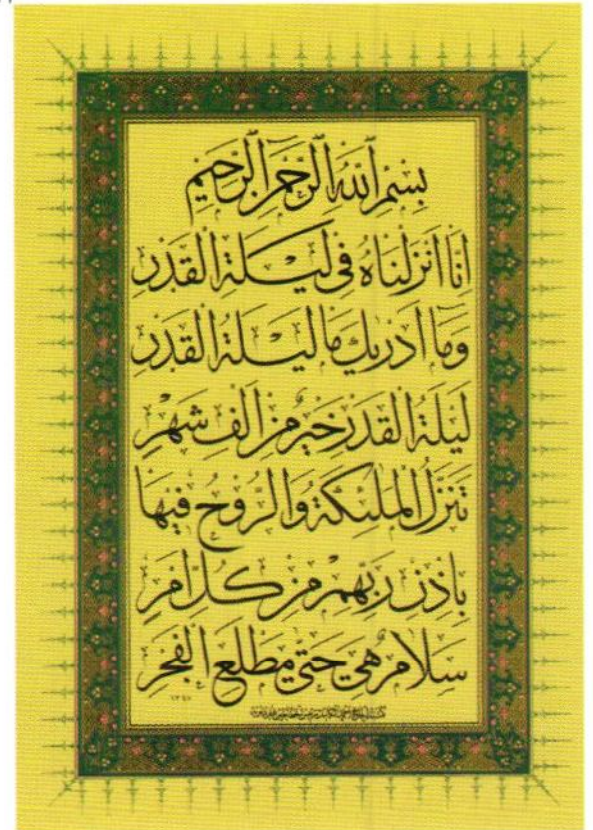 بِسْمِ ٱللّٰهِ ٱلرَّحْمٰنِ ٱلرَّحِيمِ
اِنَّا اَنْزَلْنَاهُ فِي لَيْلَةِ الْقَدْرِ
وَمَا اَدْرٰيكَ مَا لَيْلَةُ الْقَدْرِ
لَيْلَةُ الْقَدْرِ خَيْرٌ مِنْ اَلْفِ شَهْرٍ
تَنَزَّلُ الْمَلٰئِكَةُ وَالرُّوحُ فِيهَا
بِاِذْنِ رَبِّهِمْ مِنْ كُلِّ اَمْرٍ
سَلَامٌ هِيَ حَتّٰى مَطْلَعِ الْفَجْرِ